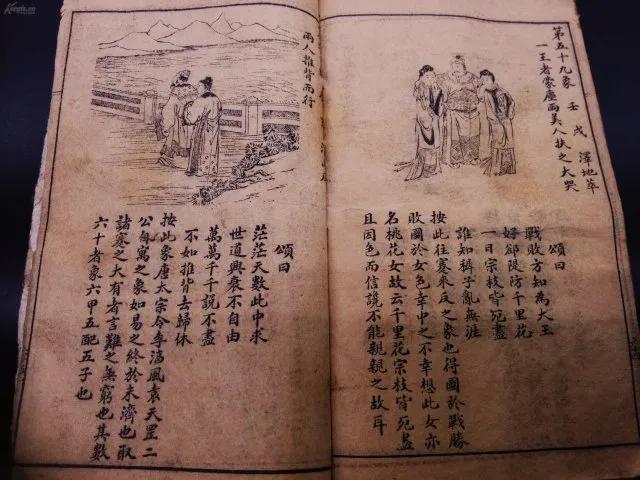 第五十九象 壬戌 澤地萃
一王者蒙塵兩美人扶之大哭
頌曰
戰敗方知為大王
好卻隄防千里花
一日宗枝皆宛盡
誰知稗子亂無涯
按此往蹇來反之象也得國於戰勝
敗國於女色幸中之不幸想此女亦
名桃花女故云千里花宗枝皆宛盡
且因色而信讒不能親親之故耳
兩人推背而行
頌曰
茫茫天數此中求
世道興衰不自由
萬萬千千說不盡
不如推背去歸休
按此象唐太宗令李淳風袁天罡二
公自寓之象如易之終於未濟也取
諸蹇之大有者言難之無窮也其數
六十者象六甲五配五子也